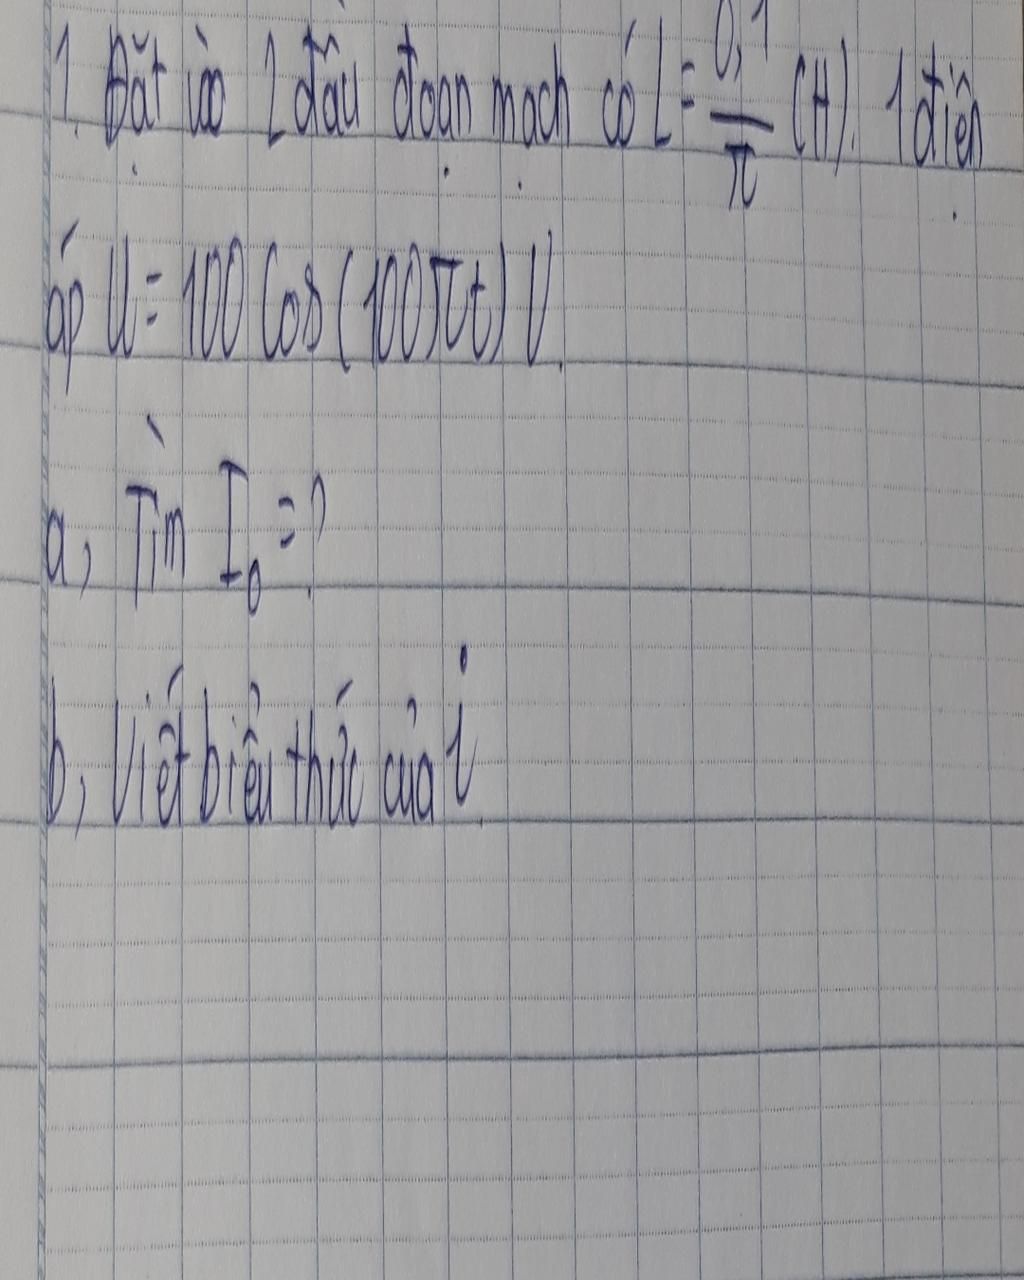 1. Đặt vào 2 đầu đoạn mạch có L = 0,1/π (H). 1 điện
áp U = 100 Cos (100πt) V.
a, Tìm I₀ = ?
b, Viết biểu thức của i.